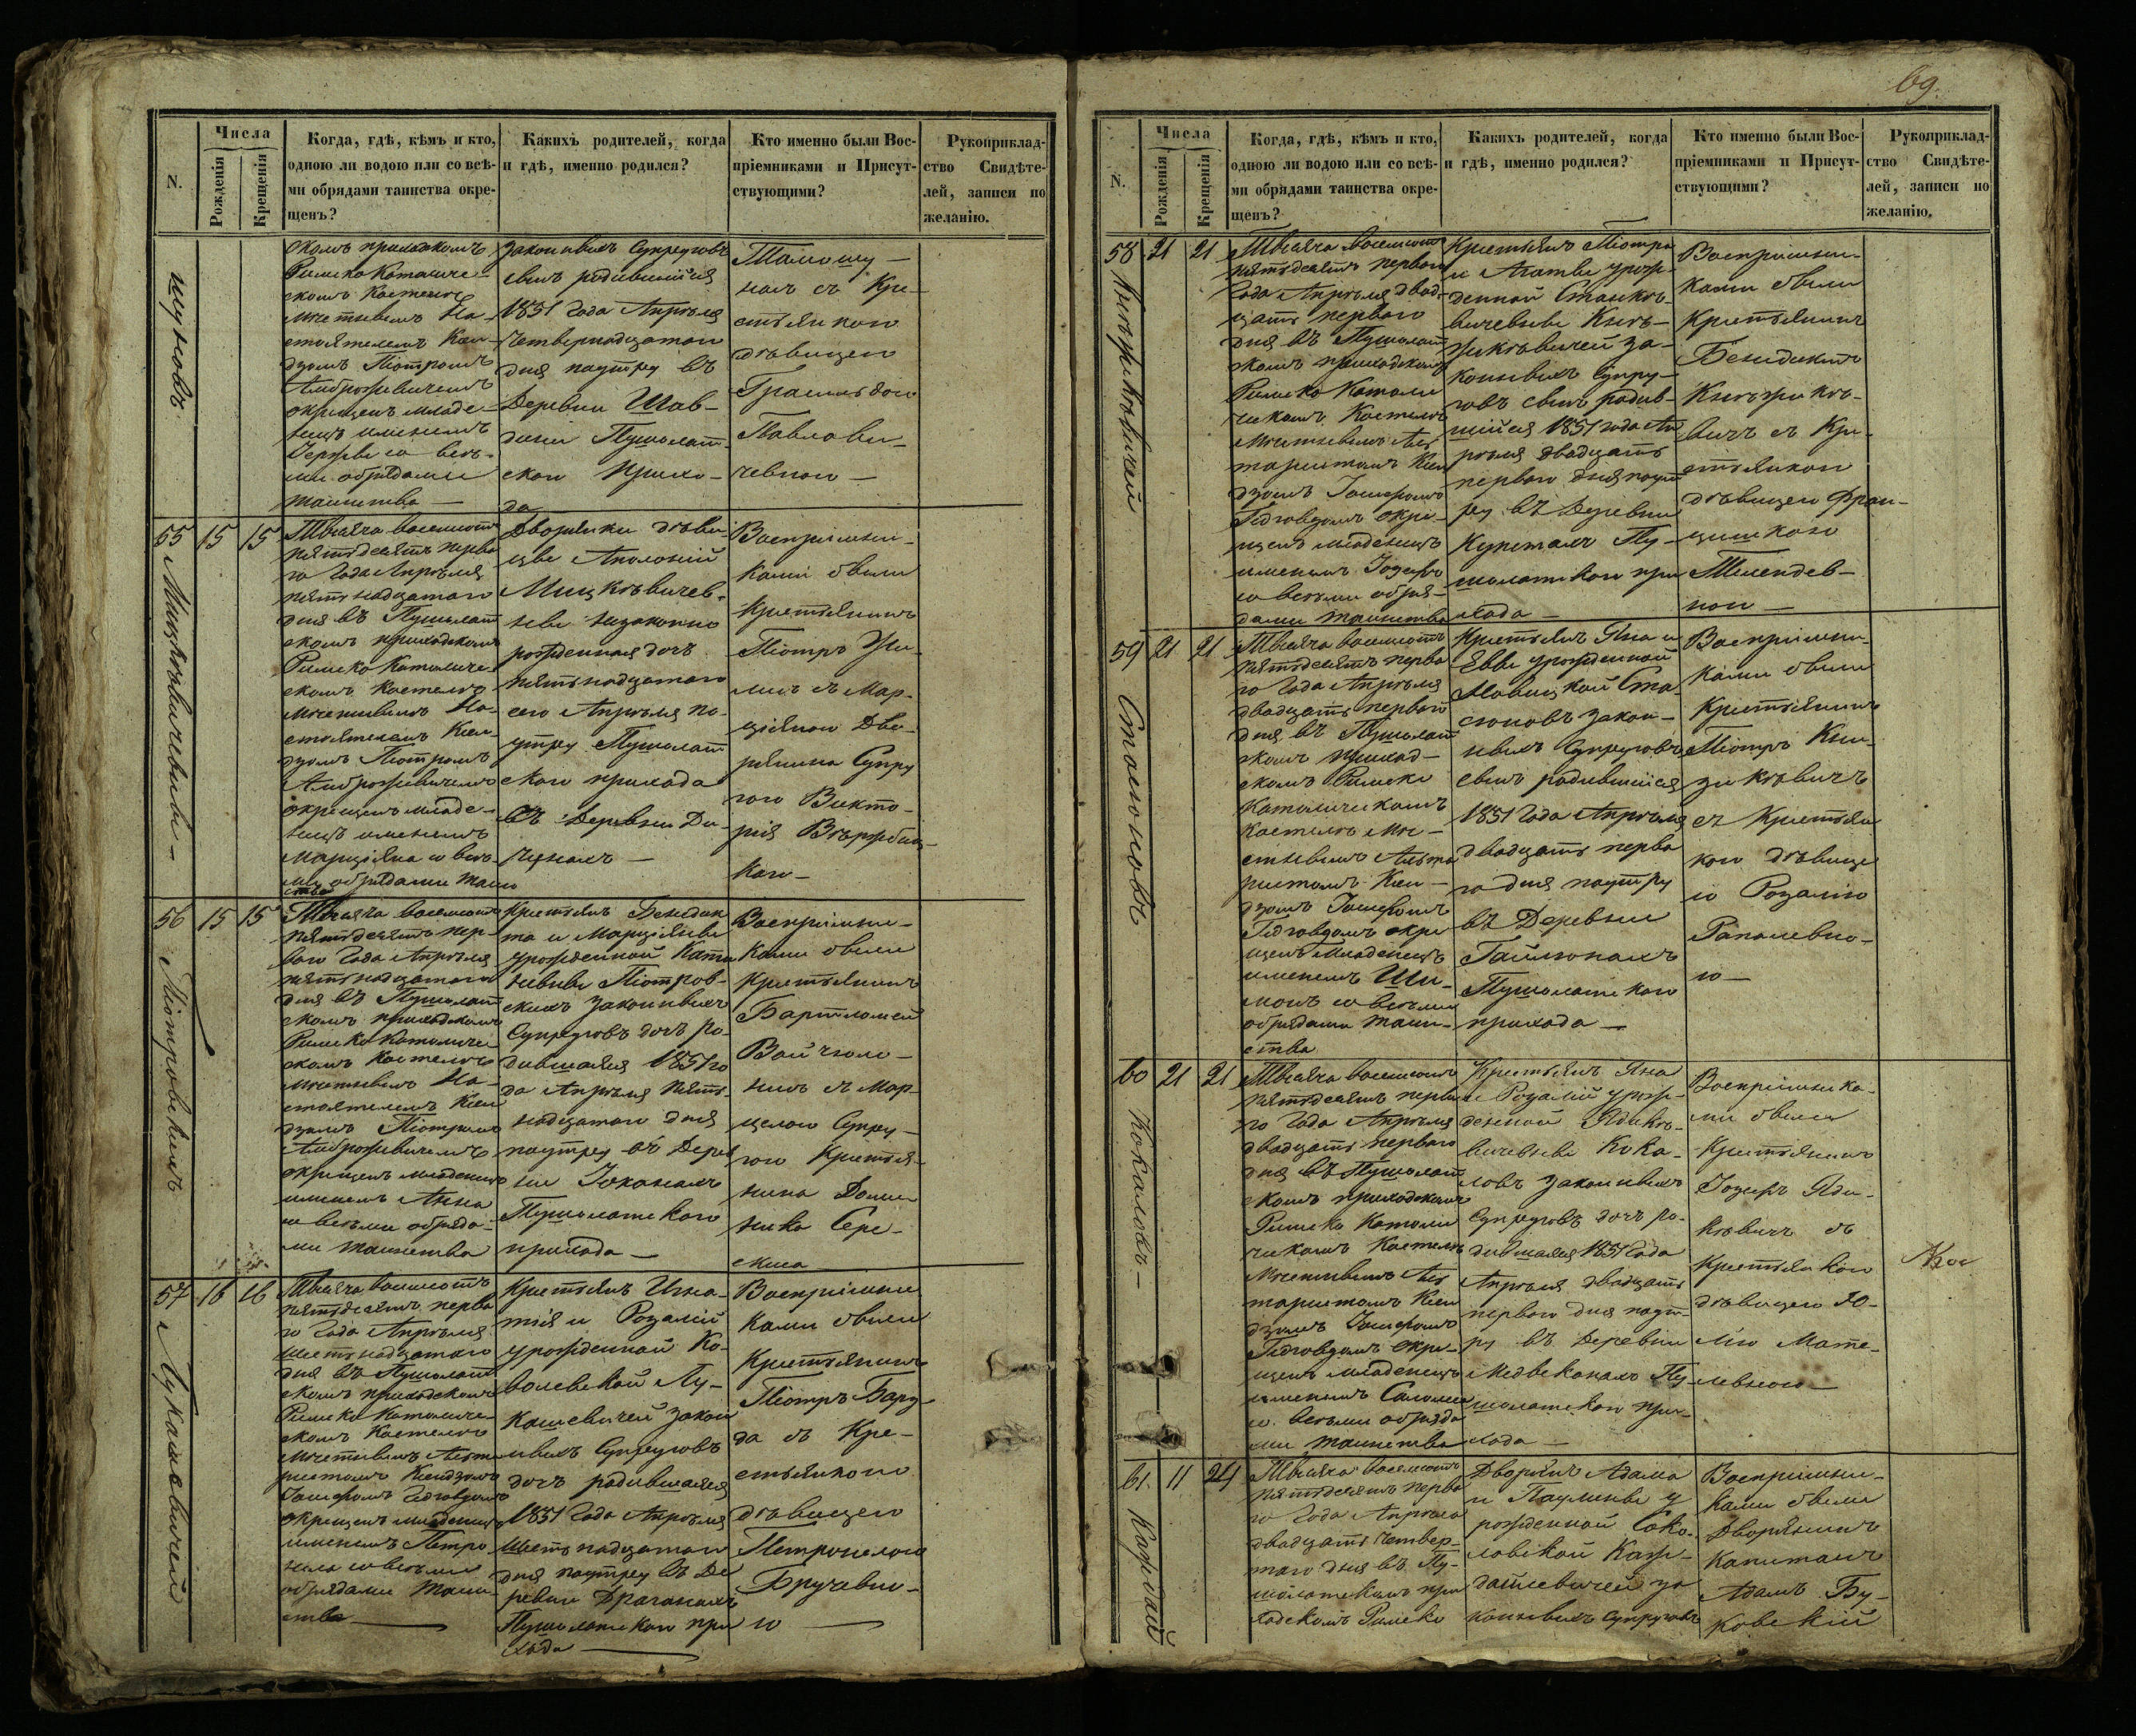 69.
N.
Числа
Рожденія
Крещенія
Когда, гдѣ, кѣмъ и кто,
одною ли водою или со всѣ-
ми обрядами таинства окре-
щенъ?
Какихъ родителей, когда
и гдѣ, именно родился?
Кто именно были Вос-
пріемниками и Присут-
ствующими?
Рукоприклад-
ство Свидѣте-
лей, записи по
желанію.
скомъ приходскомъ
Римско Католиче-
скомъ Костелѣ
Мѣстнымъ На-
стоятелемъ Ксен-
дзомъ Піотромъ
Амброжевичемъ
окрещенъ младе-
нецъ именемъ
со всѣ-
ми обрядами
таинства —
законныхъ Супруговъ
сынъ родившійся
1851 Года Апрѣля
Четвертнадцатаго
дня поутру въ
Деревни Шав-
Пушолат-
скаго прихо-
да
съ Кре-
стьянкою
дѣвицею
Павлови-
чевною —
55
15
15
Мицкѣвичевны —
Тысяча восемсотъ
пятьдесятъ перва
го Года Апрѣля
пятьнадцатаго
дня въ Пушолат
скомъ приходскомъ
Римско Католиче-
скомъ Костелѣ
Мѣстнымъ На-
стоятелемъ Ксен-
дзомъ Піотромъ
Амброжевичемъ
окрещенъ младе-
нецъ именемъ
Марціяна со всѣ-
ми обрядами таин
ства
Дворянки дѣви-
цы Аполоній
Мицкѣвичев-
ны незаконно
рожденная дочь
пятьнадцатаго
сего Апрѣля по-
утру Пушолат
скаго прихода
въ Деревни Ди-
—
Воспріемни-
ками были
Крестьянинъ
Піотръ
съ Мар-
ціяною Дво-
рянина Супру
гою Викто-
рія
кого —
56
15
15
Піотровскихъ
Тысяча восемсотъ
пятьдесятъ пер-
ваго Года Апрѣля
пятьнадцатаго
дня въ Пушолат
скомъ приходскомъ
Римско Католиче
скомъ Костелѣ
Мѣстнымъ На-
стоятелемъ Ксен
дзомъ Піотромъ
Амброжевичемъ
окрещенъ младенецъ
именемъ Анна
со всѣми обряда-
ми таинства
Крестьянъ Бенедик
та и Марціяны
урожденной
Піотров-
скихъ законныхъ
Супруговъ дочь ро-
дившаяся 1851 го
да Апрѣля пять-
надцатаго дня
поутру въ Дерев
ни Юканахъ
Пушолатскаго
прихода —
Воспріемни-
ками были
Крестьянинъ
Бартломей
съ Мар-
целою Супру-
гою Крестья-
нина Доми
ника
57
16
16
Лукашевичей
Тысяча восемсотъ
пятьдесятъ перва
го Года Апрѣля
шестьнадцатаго
дня въ Пушолат
скомъ приходскомъ
Римско Католиче-
скомъ Костелѣ
Мѣстнымъ Альта
ристомъ Ксендзомъ
Іосифомъ Гедговдомъ
окрещенъ младенецъ
именемъ Петро-
нела со всѣми
обрядами таин-
ства —
Крестьянъ Игна-
тія и Розаліи
урожденной Ко-
валевской Лу-
кашевичей закон
ныхъ Супруговъ
дочь родившаяся
1851 Года Апрѣля
Шестьнадцатаго
дня поутру въ Де
ревни Драганахъ
Пушолатскаго при
хода —
Воспріемни
ками были
Крестьянинъ
Піотръ
съ Кре-
стьянкою
дѣвицею
Петронелою
Бручевно-
ю —
58
21
21
Тысяча восемсотъ
пятьдесятъ первого
Года Апрѣля двад-
цать первого
дня въ Пушолат
скомъ приходскомъ
Римско Католи
ческомъ Костелѣ
Мѣстнымъ Аль
таристомъ Ксен
дзомъ Іосифомъ
Гедговдомъ окре-
щенъ младенецъ
именемъ Іозефъ
со всѣми обря-
дами таинства
Крестьянъ Піотра
и Агаты урож-
денной Станкѣ-
вичевны Кнѣ-
жикѣвичей за-
конныхъ Супру-
говъ сынъ родив-
шійся 1851 года Ап
рѣля двадцать
первого дня поут
ру въ Деревни
Пу-
шолатскаго при
хода —
Воспріемни-
ками были
Крестьянинъ
Бенедиктъ
Кнѣжикѣ-
вичъ съ Кре-
стьянкою
дѣвицею Фран-
цишкою
ною —
59
21
21
Стасюновъ
Тысяча восемсотъ
пятьдесятъ перва
го Года Апрѣля
двадцать первого
дня въ Пушолат
скомъ приход-
скомъ Римско
Католическомъ
Костелѣ Мѣ-
стнымъ Альта
ристомъ Ксен-
дзомъ Іосифомъ
Гедговдомъ окре
щенъ Младенецъ
именемъ Ши-
монъ со всѣми
обрядами таин-
ства
Крестьянъ Яна и
Еввы урожденной
Новицкой Ста
сюновъ закон-
ныхъ Супруговъ
сынъ родившійся
1851 Года Апрѣля
двадцать перва
го дня поутру
въ Деревни
Гайлюнахъ
Пушолатскаго
прихода —
Воспріемни-
ками были
Крестьянинъ
Піотръ
съ Крестьян
кою дѣвице
ю Розалію
ю —
60
21
21
Кокаловъ —
Тысяча восемсотъ
пятьдесятъ перва
го Года Апрѣля
двадцать первого
дня въ Пушолат
скомъ приходскомъ
Римско Католи
ческомъ Костелѣ
Мѣстнымъ Аль
таристомъ Ксен
дзомъ Іосифомъ
Гедговдомъ окре-
щенъ младенецъ
именемъ Саломея
со всѣми обряда
ми таинства
Крестьянъ Яна
и Розаліи урож-
денной Ядикѣ-
вичевны Кока-
ловъ законныхъ
Супруговъ дочь ро-
дившаяся 1851 Года
Апрѣля двадцать
первого дня поут-
ру въ Деревни
Медвеканахъ Пу-
шолатскаго при-
хода —
Воспріемника-
ми были
Крестьянинъ
Іозефъ Яди-
кѣвичъ съ
Крестьянкою
дѣвицею Ю-
лію Мате-
левною —
61.
11
24
Тысяча восемсотъ
пятьдесятъ перва
го Года Апрѣля
двадцать четвер-
таго дня въ Пу-
шолатскомъ при
ходскомъ Римско
Дворянъ Адама
и Паулины у
рожденной Соко-
ловской
за
конныхъ Супруговъ
Воспріемни-
ками были
Дворянинъ
Капитанъ
Адамъ Бу-
ковскій